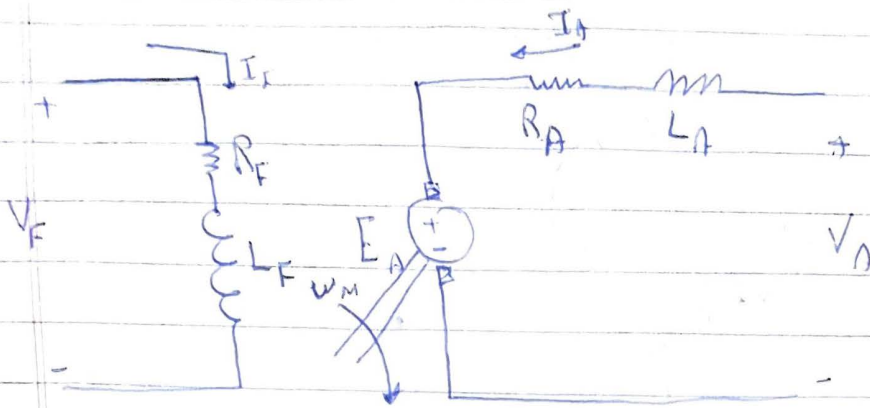 I_A
I_F
+
R_A L_A
+
R_F
V_F
E_A
+
-
V_A
L_F
ω_M
-
-